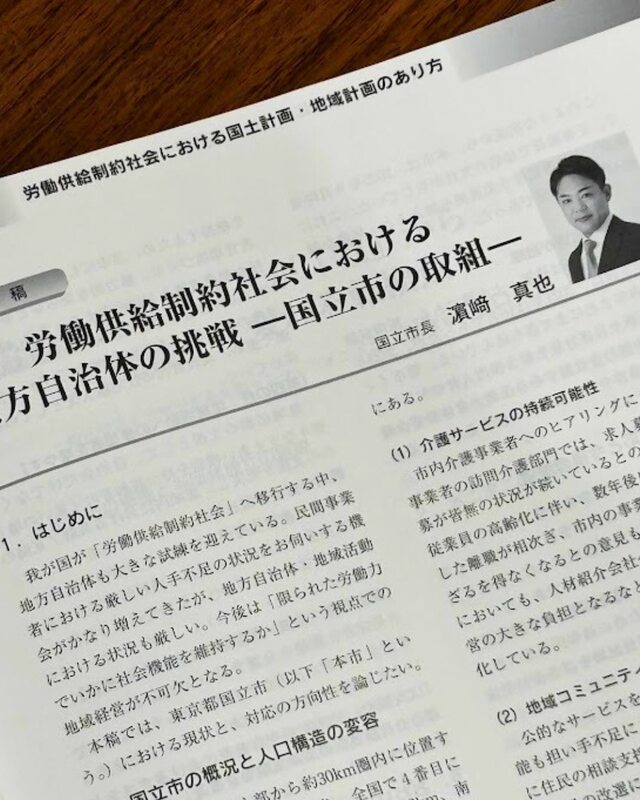 労働供給制約社会における国土計画・地域計画のあり方
稿
労働供給制約社会における
方自治体の挑戦 ―国立市の取組―
国立市長 濵﨑 真也
1．はじめに
我が国が「労働供給制約社会」へ移行する中、
地方自治体も大きな試練を迎えている。民間事業
者における厳しい人手不足の状況をお伺いする機
会がかなり増えてきたが、地方自治体・地域活動
における状況も厳しい。今後は「限られた労働力
でいかに社会機能を維持するか」という視点での
地域経営が不可欠となる。
本稿では、東京都国立市（以下「本市」とい
う。）における現状と、対応の方向性を論じたい。
国立市の概況と人口構造の変容
部から約30km圏内に位置す
全国で４番目に
南
にある。
(1) 介護サービスの持続可能性
市内介護事業者へのヒアリングに
事業者の訪問介護部門では、求人募
募が皆無の状況が続いているとの
従業員の高齢化に伴い、数年後
した離職が相次ぎ、市内の事業
ざるを得なくなるとの意見も
においても、人材紹介会社
営の大きな負担となるなど
化している。
(2) 地域コミュニティ
公的なサービスを
能も担い手不足に
に住民の相談支
の改選に